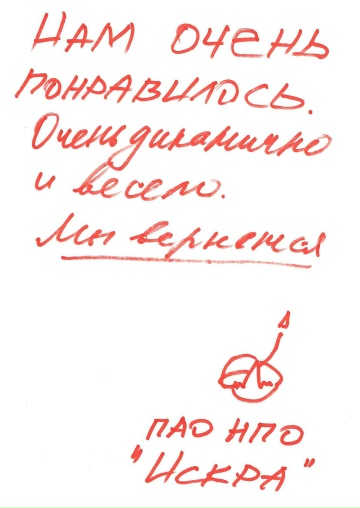 НАМ ОЧЕНЬ
ПОНРАВИЛОСЬ.
Очень динамично
и весело.
Мы вернемся
ПАО НПО
"ИСКРА"